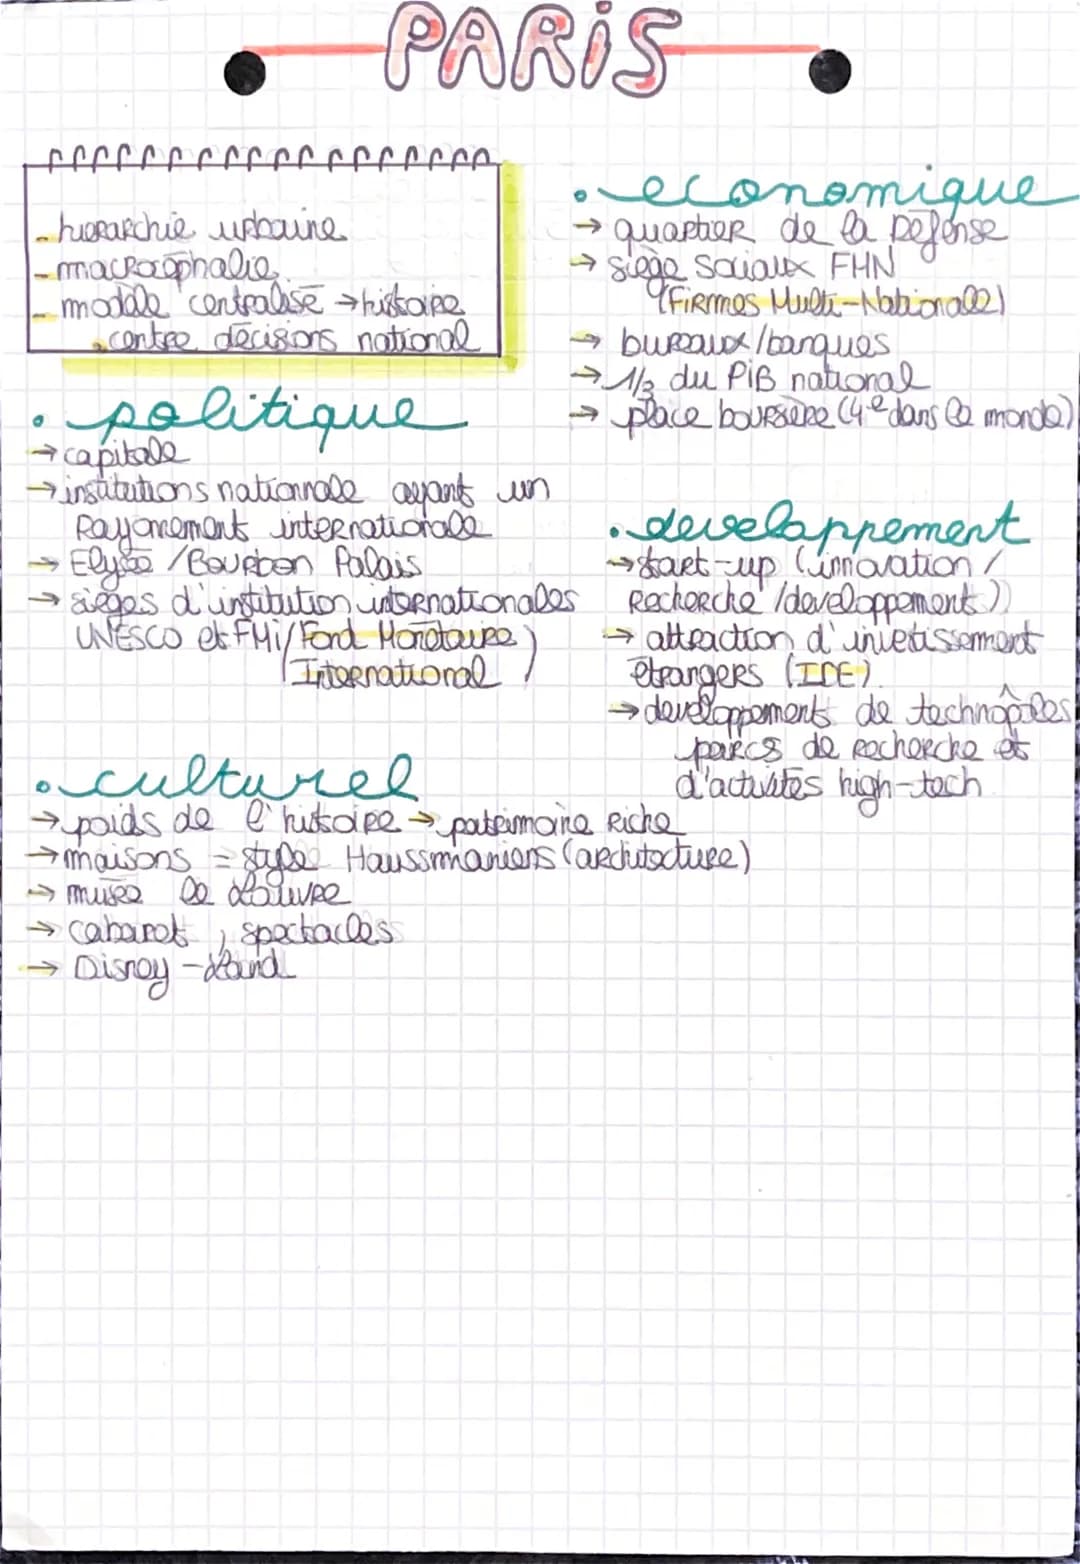 PARiS
- hierarchie urbaine
- macrocéphalie
- modèle centralisé → histoire
centre décisions national
• politique
→ capitale
→ institutions nationnale ayant un
Rayonement internationale
→ Elysée / Bourbon Palais
→ sièges d'institution internationales
UNESCO et FMi (Fond Monétaire
International)
• economique
→ quartier de la Défense
→ siège sociaux FMN
(Firmes Multi-Nationale)
→ bureaux / banques
→ 1/3 du PiB national
→ place boursière (4e dans le monde)
• developpement
→ start-up (innovation /
Recherche / developpement))
→ attraction d'invetissement
étrangers (IDE)
→ developpements de technopôles,
parcs de recherche et
d'activités high-tech
• culturel
→ poids de l'histoire → patrimoine Riche
→ maisons = style Haussmaniens (architecture)
→ musée le Louvre
→ cabaret, spectacles
→ Disney-Land